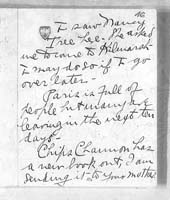 16
I saw Nancy
Tree Lee. She asked
me to come to Kilmarsh
I may do so if I go
over later -
Paris is full of
people but many are
leaving in the next ten
days -
Chips Channon has
a new book out, I am
sending it to your mother